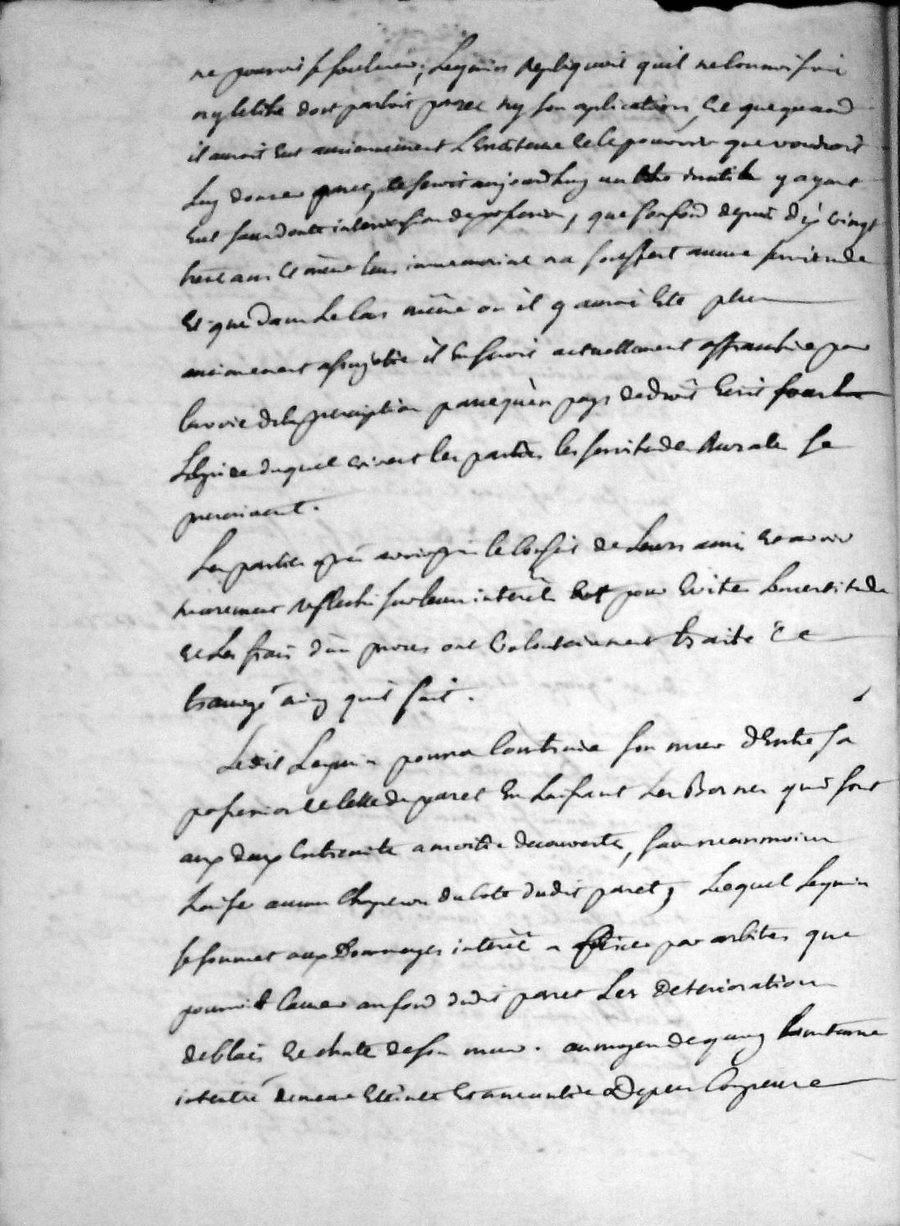 ne pouvoit se soutenir, Lequin repliquoit quil ne connoissoit
ny le titre dont parloit paret ny son aplication, Et que quand
il auroit eut anciennement L'Enctenne et le pouvoir que voudroit
Luy donner paret, ce seroit aujourdhuy un titre inutile y ayant
eut sans doute interversion de possession, que son fond depuis dix vingt
trente ans Et même tems immemorial na souffert aucune servitude
Et que dans Le cas même ou il y auroit Eté plus
anciennement assujetie il En seroit actuellement affranchie par
la voie de la prescription parce qu'en pays de droit Ecrit sous
L'Egide duquel vivent les parties les servitudes Rurales se
prescrivent.
Les parties après avoir pris le Conseil de Leurs amis Et avoir
meurement reflechi sur leurs interêts Et pour Eviter Lincertitude
et Les frais d'un procès ont volontairement traité Et
transigé ainsy quil suit.
Ledit Lequin pourra Construire son mur d'Entre sa
possession Et celle de paret En Laissant Les Bornes qui sont
aux deux Extremités a moitié decouverte, sans neanmoins
Laisser aucun Chaperon du coté dudit paret, Lequel Lequin
se soumet aux Dommages interêt a fixer par arbitres que
pourroit Causer au fond dudit paret Les Deteriorations
deblais Et chute de son mur. au moyen de quoy L'instance
intentée demeure Eteinte Et aneantie Depens Compensés